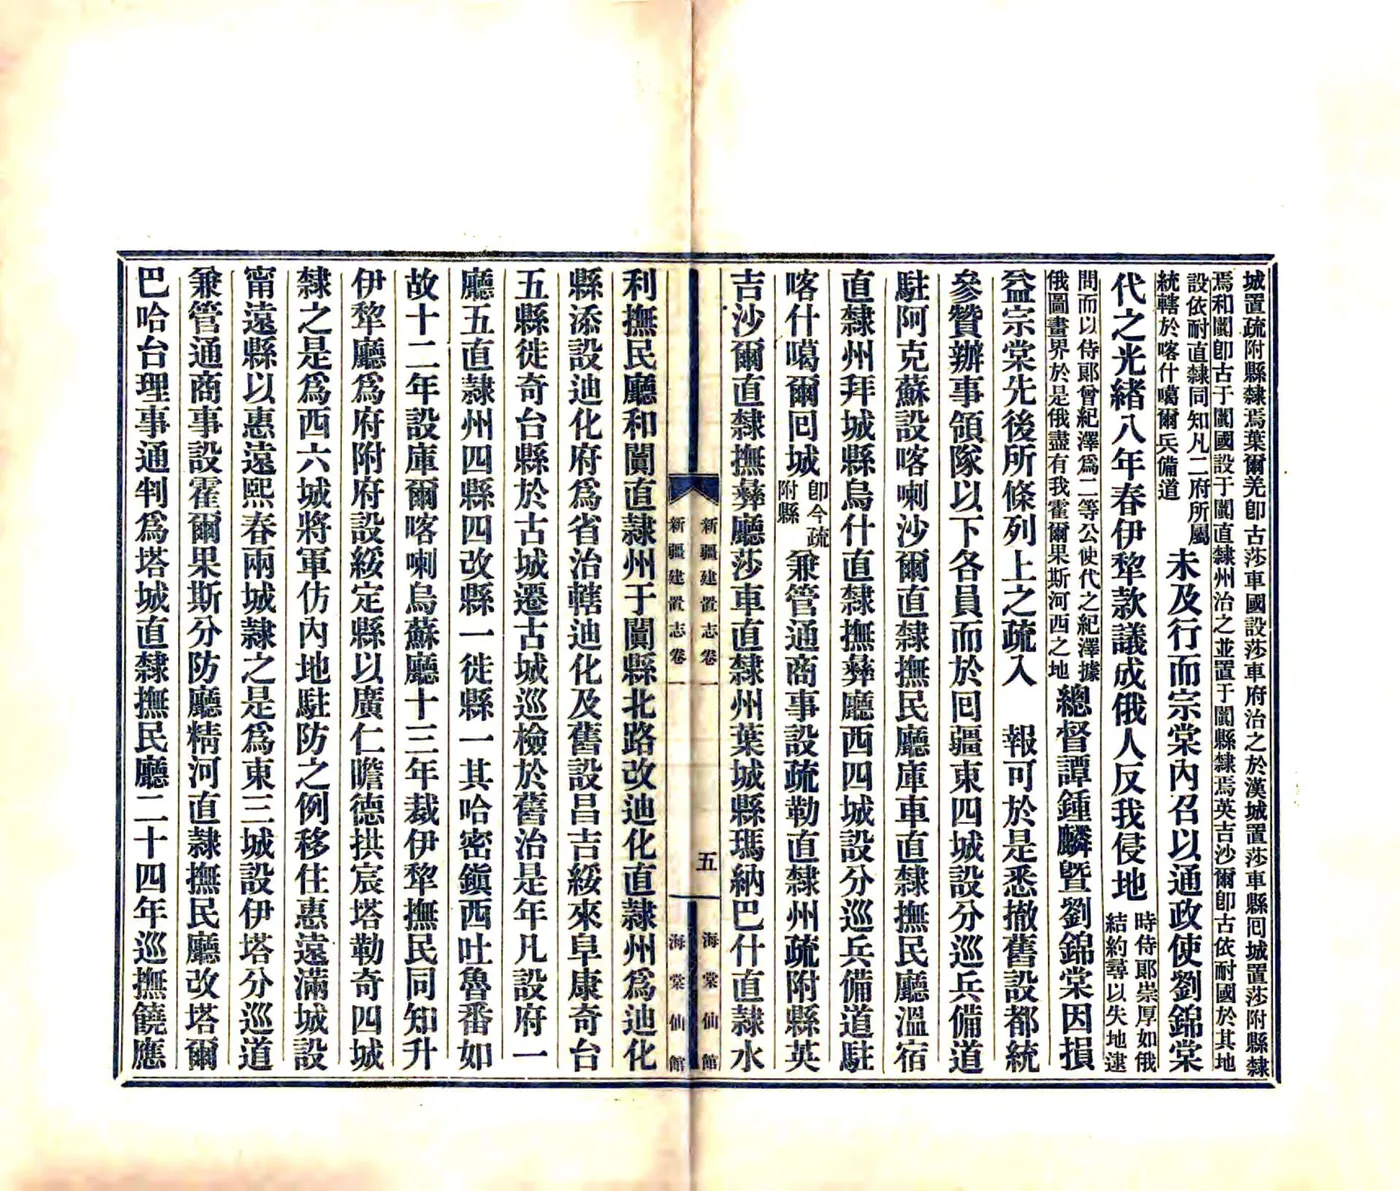 城置疏附縣隸焉葉爾羌卽古莎車國設莎車府治之於漢城置莎車縣囘城置莎附縣隸
焉和闐卽古于闐國設于闐直隸州治之並置于闐縣隸焉英吉沙爾卽古依耐國於其地
設依耐直隸同知凡二府所屬
統轄於喀什噶爾兵備道
未及行而宗棠內召以通政使劉錦棠
代之光緒八年春伊犂款議成俄人反我侵地
時侍郎崇厚如俄
結約尋以失地逮
問而以侍郎曾紀澤爲二等公使代之紀澤據
俄圖畫界於是俄盡有我霍爾果斯河西之地
總督譚鍾麟暨劉錦棠因損
益宗棠先後所條列上之疏入 報可於是悉撤舊設都統
參贊辦事領隊以下各員而於回疆東四城設分巡兵備道
駐阿克蘇設喀喇沙爾直隸撫民廳庫車直隸撫民廳溫宿
直隸州拜城縣烏什直隸撫彝廳西四城設分巡兵備道駐
喀什噶爾囘城
卽今疏
附縣
兼管通商事設疏勒直隸州疏附縣英
吉沙爾直隸撫彝廳莎車直隸州葉城縣瑪納巴什直隸水
新疆建置志卷一
五
海棠仙館
新疆建置志卷一
海棠仙館
利撫民廳和闐直隸州于闐縣北路改迪化直隸州爲迪化
縣添設迪化府爲省治轄迪化及舊設昌吉綏來阜康奇台
五縣徙奇台縣於古城遷古城巡檢於舊治是年凡設府一
廳五直隸州四縣四改縣一徙縣一其哈密鎭西吐魯番如
故十二年設庫爾喀喇烏蘇廳十三年裁伊犂撫民同知升
伊犂廳爲府附府設綏定縣以廣仁瞻德拱宸塔勒奇四城
隸之是爲西六城將軍仿內地駐防之例移住惠遠滿城設
甯遠縣以惠遠熙春兩城隸之是爲東三城設伊塔分巡道
兼管通商事設霍爾果斯分防廳精河直隸撫民廳改塔爾
巴哈台理事通判爲塔城直隸撫民廳二十四年巡撫饒應